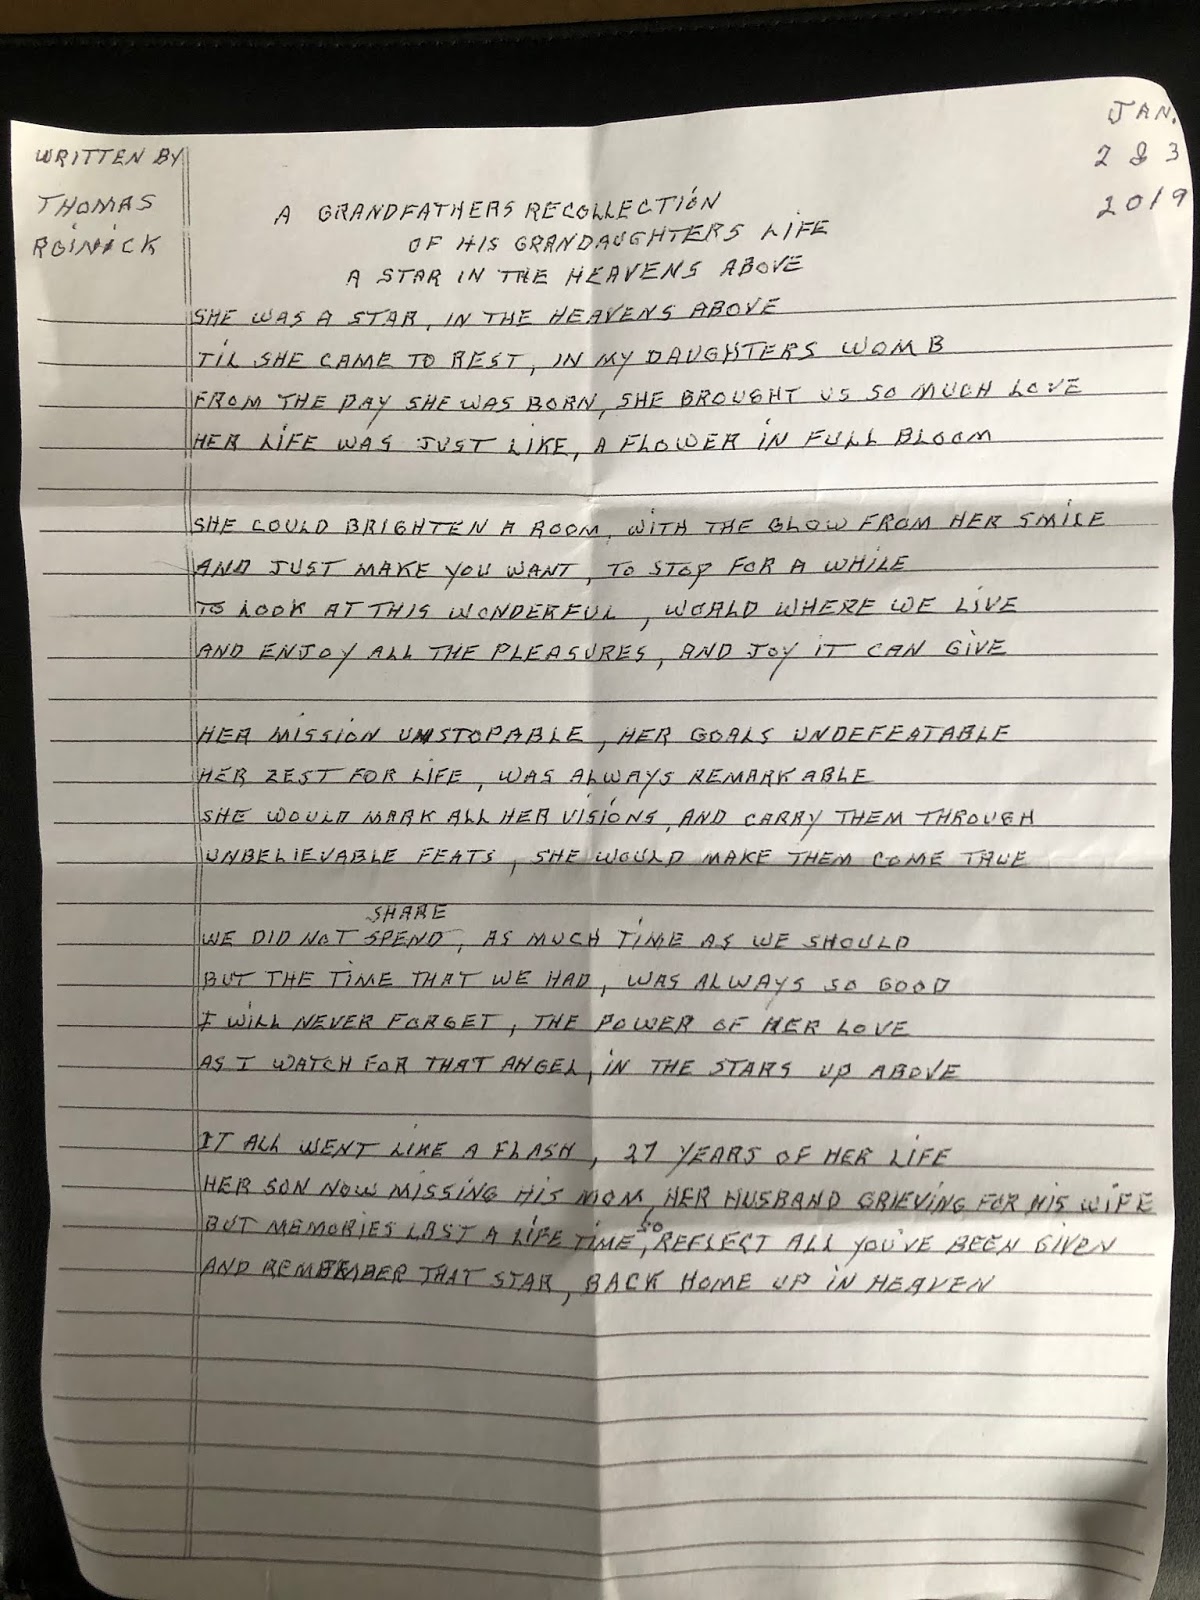 WRITTEN BY
THOMAS
ROINICK
JAN.
2 & 3
2019
A GRANDFATHERS RECOLLECTION
OF HIS GRANDAUGHTERS LIFE
A STAR IN THE HEAVENS ABOVE
SHE WAS A STAR, IN THE HEAVENS ABOVE
TIL SHE CAME TO REST, IN MY DAUGHTERS WOMB
FROM THE DAY SHE WAS BORN, SHE BROUGHT US SO MUCH LOVE
HER LIFE WAS JUST LIKE, A FLOWER IN FULL BLOOM
SHE COULD BRIGHTEN A ROOM, WITH THE GLOW FROM HER SMILE
AND JUST MAKE YOU WANT, TO STOP FOR A WHILE
TO LOOK AT THIS WONDERFUL, WORLD WHERE WE LIVE
AND ENJOY ALL THE PLEASURES, AND JOY IT CAN GIVE
HER MISSION UNSTOPABLE, HER GOALS UNDEFEATABLE
HER ZEST FOR LIFE, WAS ALWAYS REMARKABLE
SHE WOULD MARK ALL HER VISIONS, AND CARRY THEM THROUGH
UNBELIEVABLE FEATS, SHE WOULD MAKE THEM COME TRUE
SHARE
WE DID NOT SPEND, AS MUCH TIME AS WE SHOULD
BUT THE TIME THAT WE HAD, WAS ALWAYS SO GOOD
I WILL NEVER FORGET, THE POWER OF HER LOVE
AS I WATCH FOR THAT ANGEL, IN THE STARS UP ABOVE
IT ALL WENT LIKE A FLASH, 27 YEARS OF HER LIFE
HER SON NOW MISSING HIS MOM, HER HUSBAND GRIEVING FOR HIS WIFE
BUT MEMORIES LAST A LIFE TIME, SO REFLECT ALL YOU'VE BEEN GIVEN
AND REMEMBER THAT STAR, BACK HOME UP IN HEAVEN